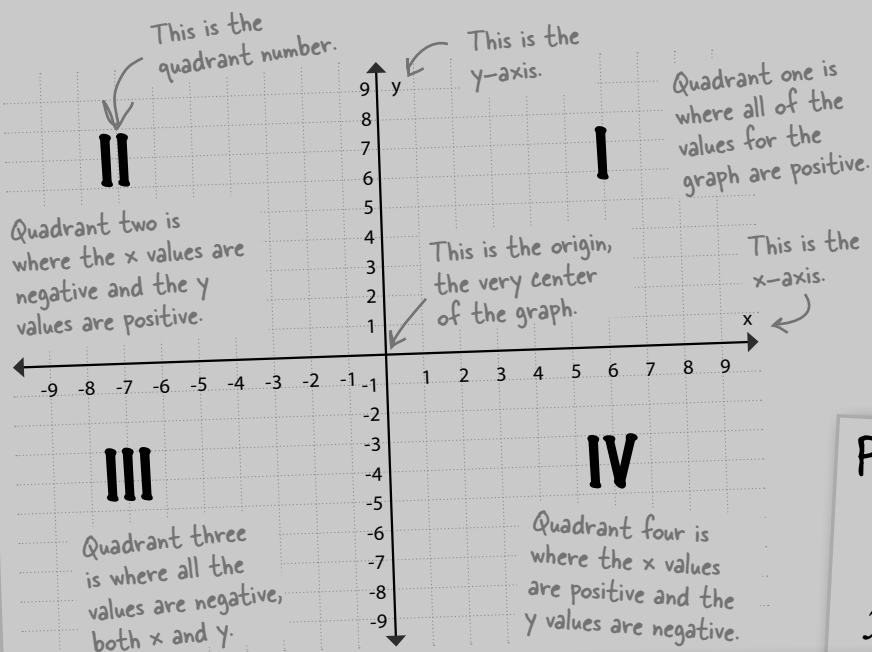 This is the
quadrant number.
This is the
y-axis.
Quadrant one is
where all of the
values for the
graph are positive.
II
I
y
9
8
7
6
5
4
3
2
1
Quadrant two is
where the x values are
negative and the y
values are positive.
This is the origin,
the very center
of the graph.
This is the
x-axis.
x
-9 -8 -7 -6 -5 -4 -3 -2 -1 1 2 3 4 5 6 7 8 9
-1
-2
-3
-4
-5
-6
-7
-8
-9
III
IV
Quadrant three
is where all the
values are negative,
both x and y.
Quadrant four is
where the x values
are positive and the
y values are negative.
P